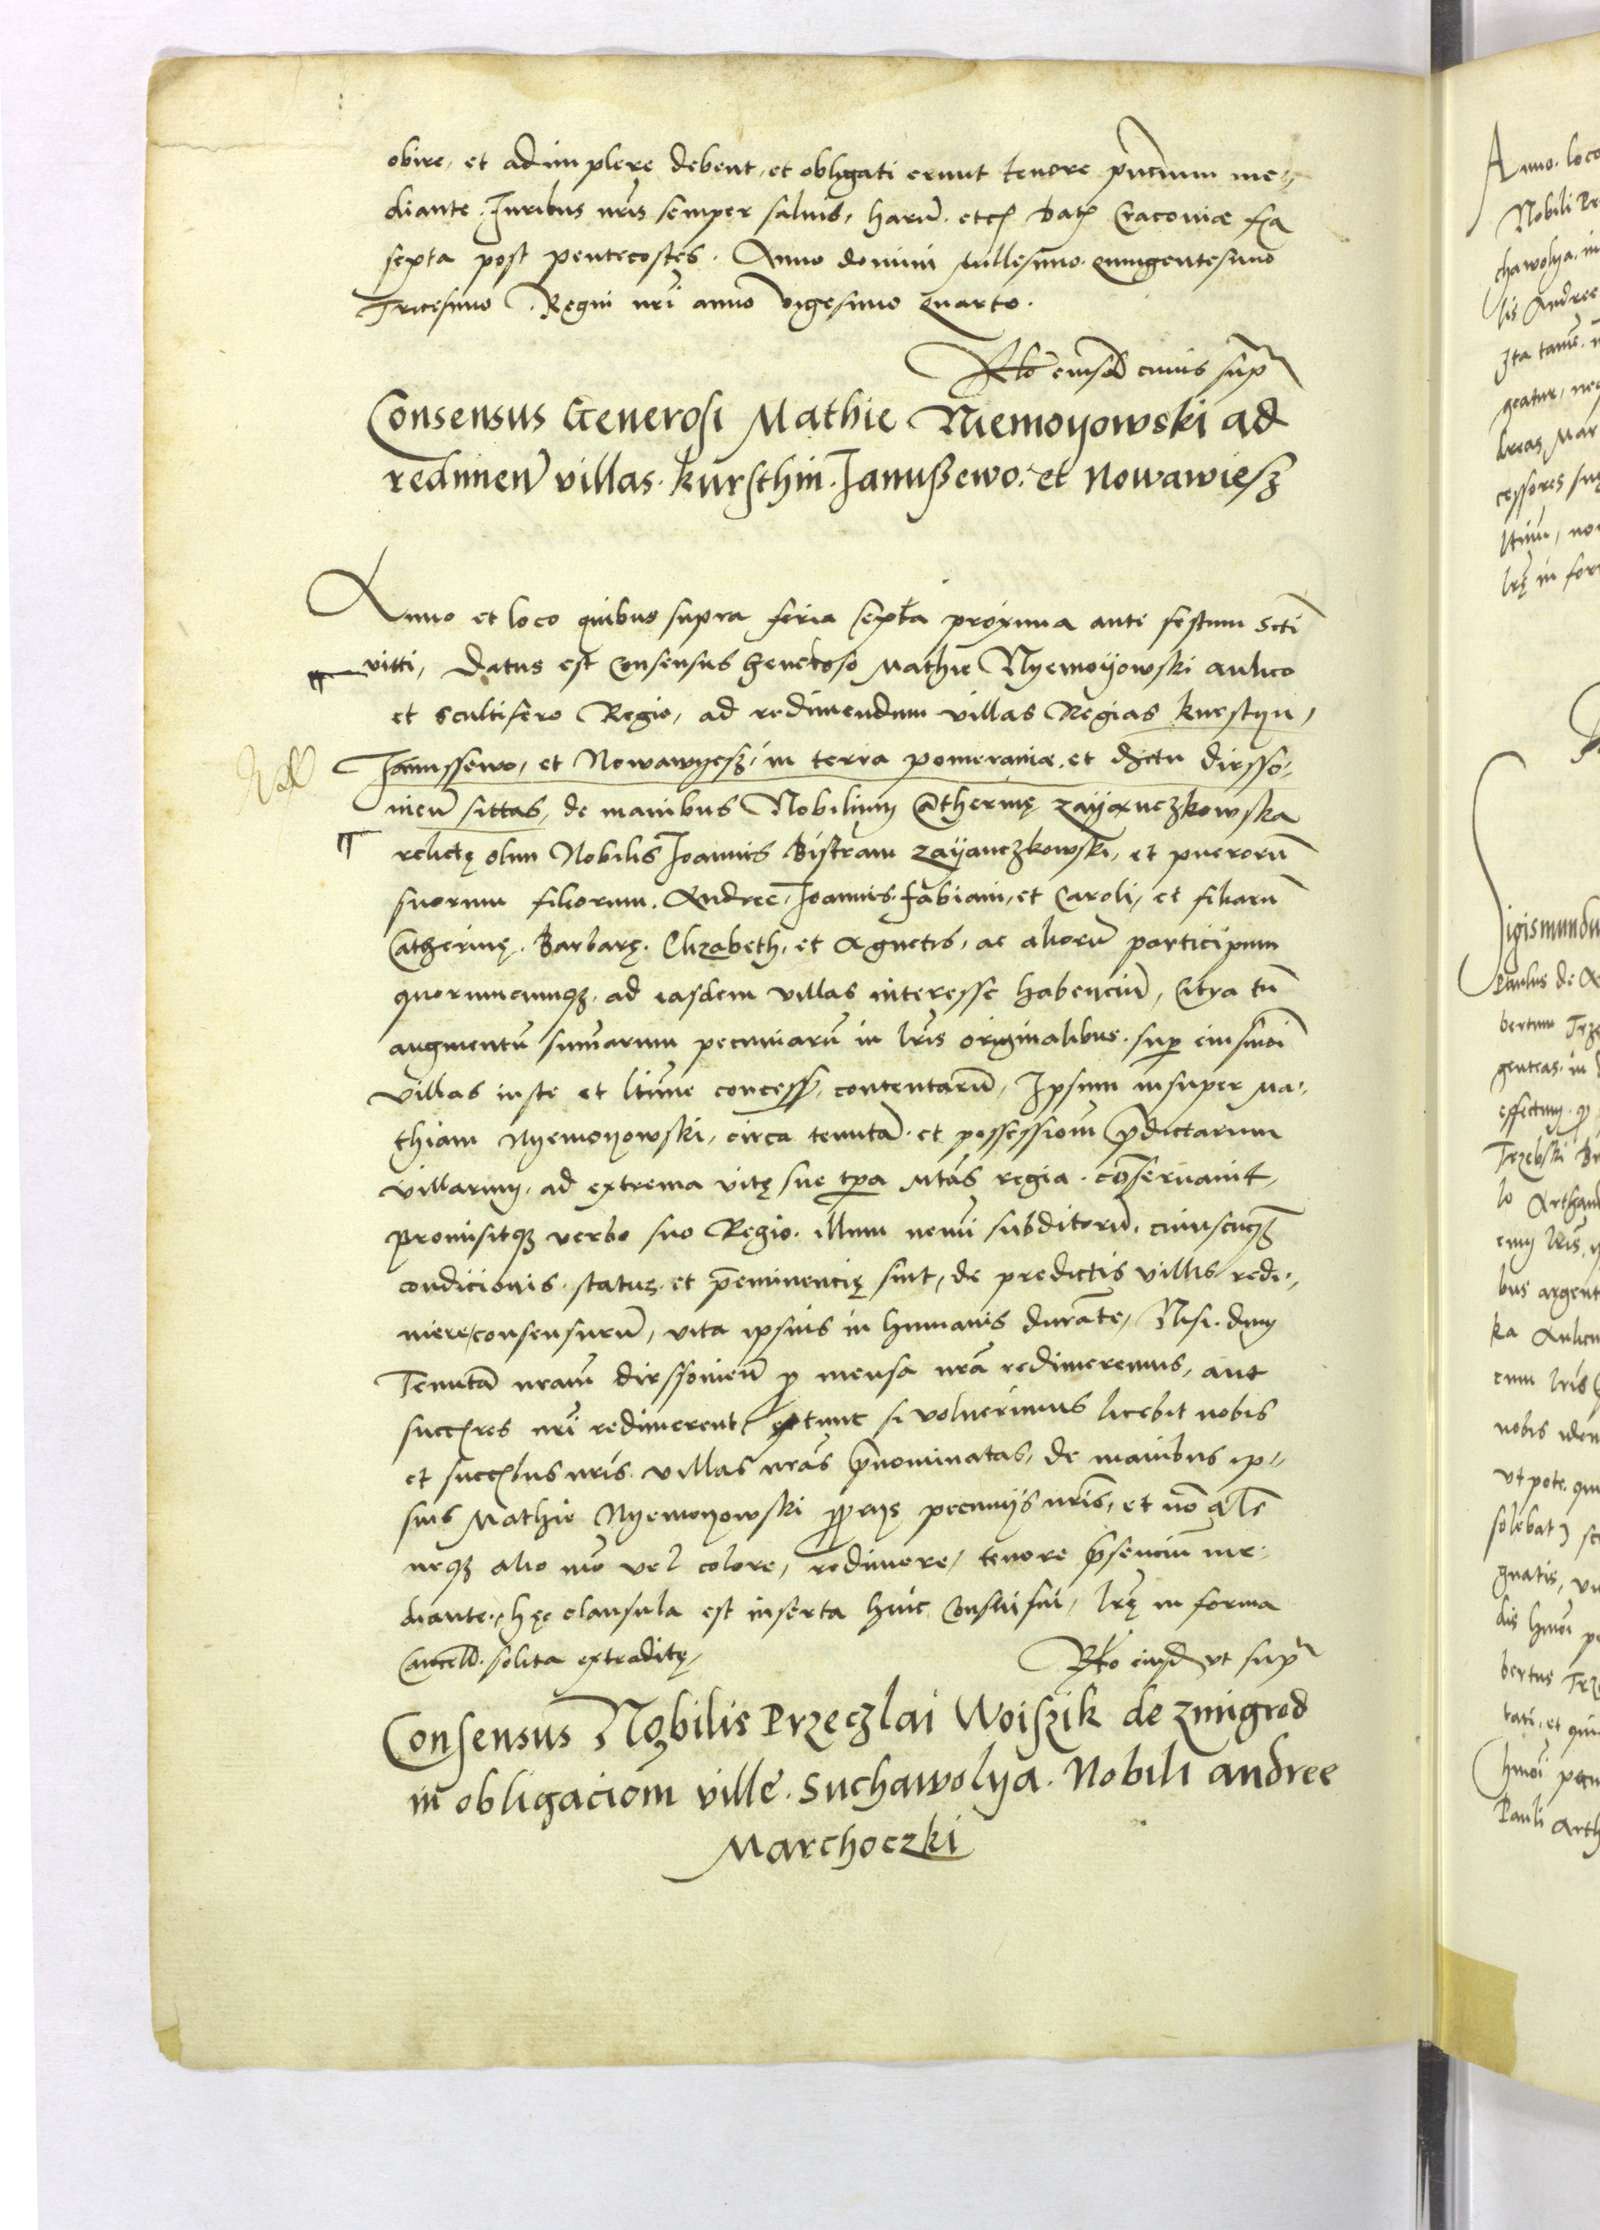 obire, et adimplere debent, et obligati erunt tenore pntium me-
diante. Iuribus nris semper salvis, harum etc. Dat Cracovie fia
sexta post pentecostes. Anno domini Millesimo quingentesimo
Tricesimo Regni nri anno vigesimo quarto.
Rlo eiusd cuius supra
Consensus Generosi Mathie Niemoyowski ad
redimen villas. Kursthin. Janußewo. et Nowawiesz
Anno et loco quibus supra feria sexta proxima ante festum Scti
Vitti, Datus est consensus generoso Mathie Nyemoyowski aulico
et scultifero Regio, ad redimendum villas Regias Kurstyn,
Janussewo, et Nowawyesz, in terra pomeranie. et dsctu dirsso-
vien sittas, de manibus Nobilium Catherinę Zayanczkowska
relictę olim Nobilis Joannis Bistram Zayanczkowski, et puerorum
suorum filiorum. Andree, Joannis. Fabiani, et Caroli, et filiarum
Catherinę. Barbarę. Elizabeth, et Agnetis, ac aliorum participum
quorumcumqz. ad easdem villas interesse habencium, citra tn
augmentum summarum pecuniarum in lris originalibus. super eiusmodi
villas iuste et ltime concess. contentarum, Ipsum insuper Ma-
thiam Nyemoyowski, circa tenutam et possessionem predictarum
villarum, ad extrema vitę sue tpora Mtas regia. conservavit,
promisitqz verbo suo Regio. illum nemini subditorum. cuiuscuqz
condicionis. status. et preeminencię sint, de predictis villis redi-
mere, consensurum, vita ipsius in humanis durante, Nisi. dum
Tenutam nram dirssovien pro mensa nra redimeremus, aut
succres nri redimerent, extunc si voluerimus licebit nobis
et succbus nris. villas nras prenominatas, de manibus ip-
sius Mathie Nyemoyowski propriys pecuniys nris, et non als
neqz alio mo vel colore, redimere, tenore presencium me-
diante. hęc clausula est inserta huic consensui, lrę in forma
Cancell. solita extraditę,
Rlo eiusd ut supra
Consensus Nobilis Przeczlai Woiszik de Zmigrod
in obligaciom ville. Suchawolya. Nobili Andree
Marchoczki